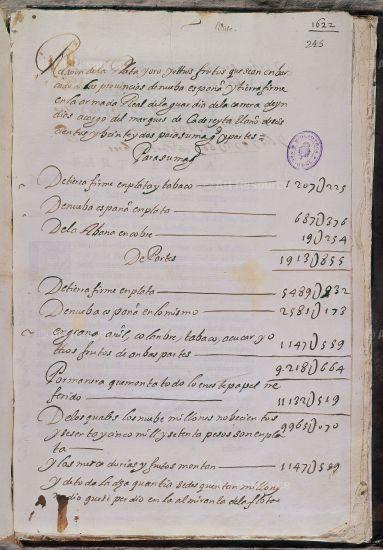 1622
245
Relaçion de la Plata y oro y otros frutos que sean enbar
cado de las provinçias de nueba españa y tierra firme
en la armada Real de la guardia de la carrera de yn
dias a cargo del marques de Cadereyta llano de seis
cientos y beinte y dos para su mag. y partes =
Para su mag.
De tierra firme en plata y tabaco 1207U225
De nueba españa en plata 687U376
De la Abana en cobre 19U254
De Partes 1913U855
De tierra firme en plata 5489U832
De nueba españa en lo mismo 2581U173
en grana, añil, colanbre, tabaco, açucar y o
tros frutos de anbas partes 1147U559
9.218U664
Por manera que monta todo lo en este papel re
ferido 11132U519
De los quales los nuebe millones nobecientos
y sesenta y cinco mill y setenta pesos son en pla
ta 9965U070
Y las mercadurias y frutos montan 1147U559
Y de toda la dha quantia se des quentan millon y
medio que se perdio en la almiranta de la flota